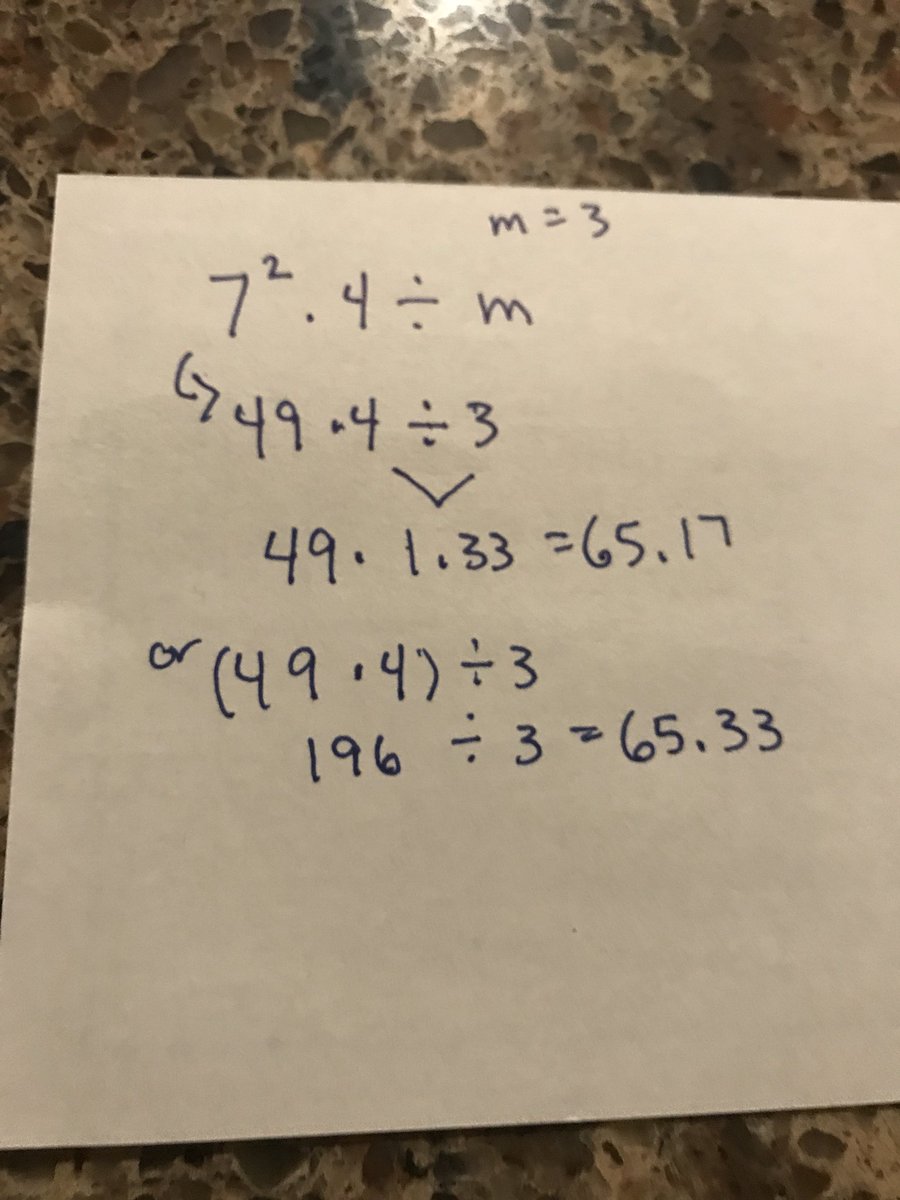 m = 3
7² · 4 ÷ m
↪ 49 · 4 ÷ 3
49 · 1.33 = 65.17
or (49 · 4) ÷ 3
196 ÷ 3 = 65.33